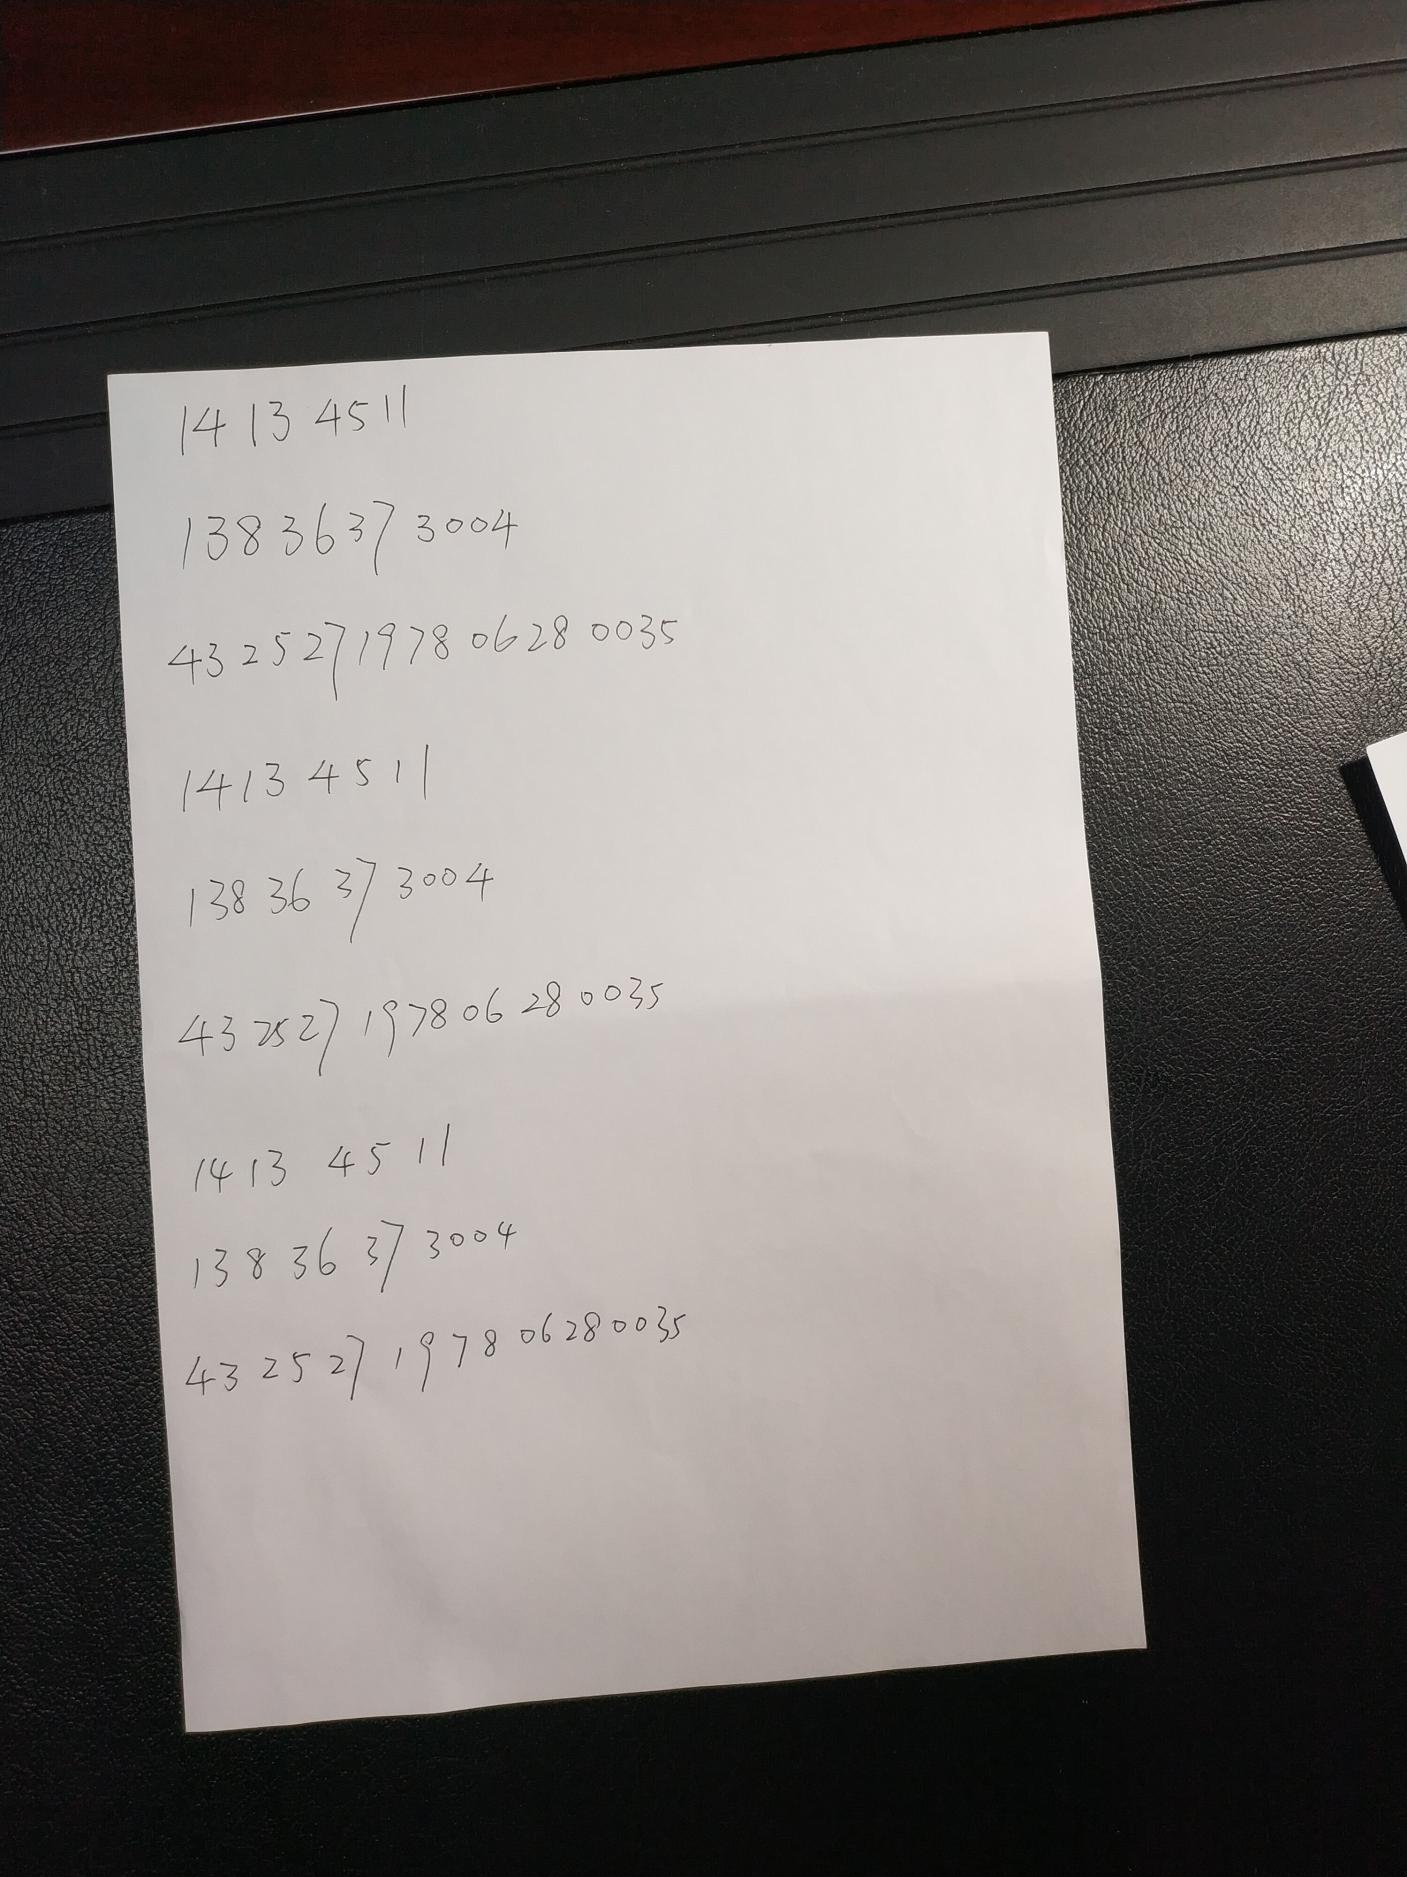 14 13 45 11
138 36 37 3004
43 25 27 1978 0628 0035
1413 4511
138 36 37 3004
43 25 27 1978 06 28 0035
1413 45 11
138 36 37 3004
43 25 27 1978 06280035